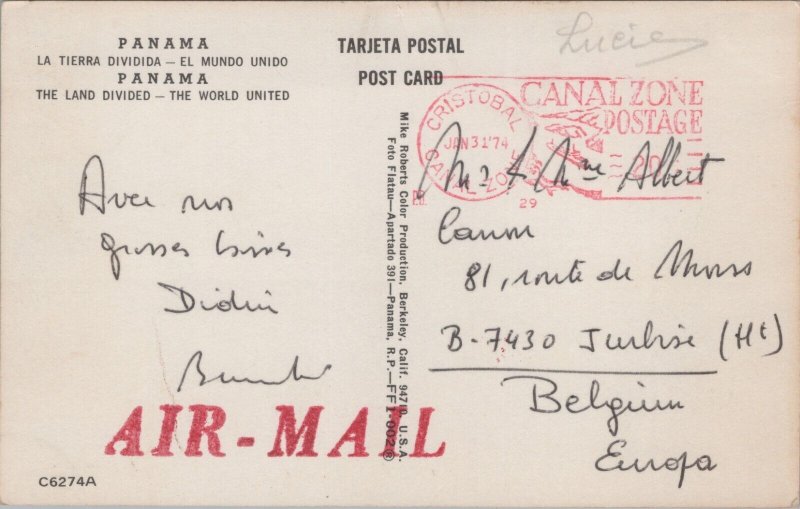 PANAMA
LA TIERRA DIVIDIDA — EL MUNDO UNIDO
PANAMA
THE LAND DIVIDED — THE WORLD UNITED
TARJETA POSTAL
POST CARD
Lucie
CRISTOBAL
JAN 31 '74
CANAL ZONE
CANAL ZONE
POSTAGE
20
P.B.
29
Avec nos
grosses bises
Didier
Mike Roberts Color Production, Berkeley, Calif. 94710, U.S.A.
Foto Flatau—Apartado 391—Panama, R.P.—FFT-002®
Mr & Mme Albert
Canon
81, route de Mons
B-7430 Jurbise (Ht)
Belgium
Europa
AIR-MAIL
C6274A